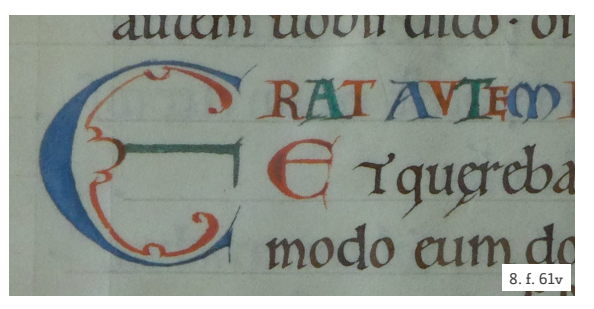 autem uobis dico · o
ERAT AVTEM
E Tquęreba
modo eum do
8. f. 61v